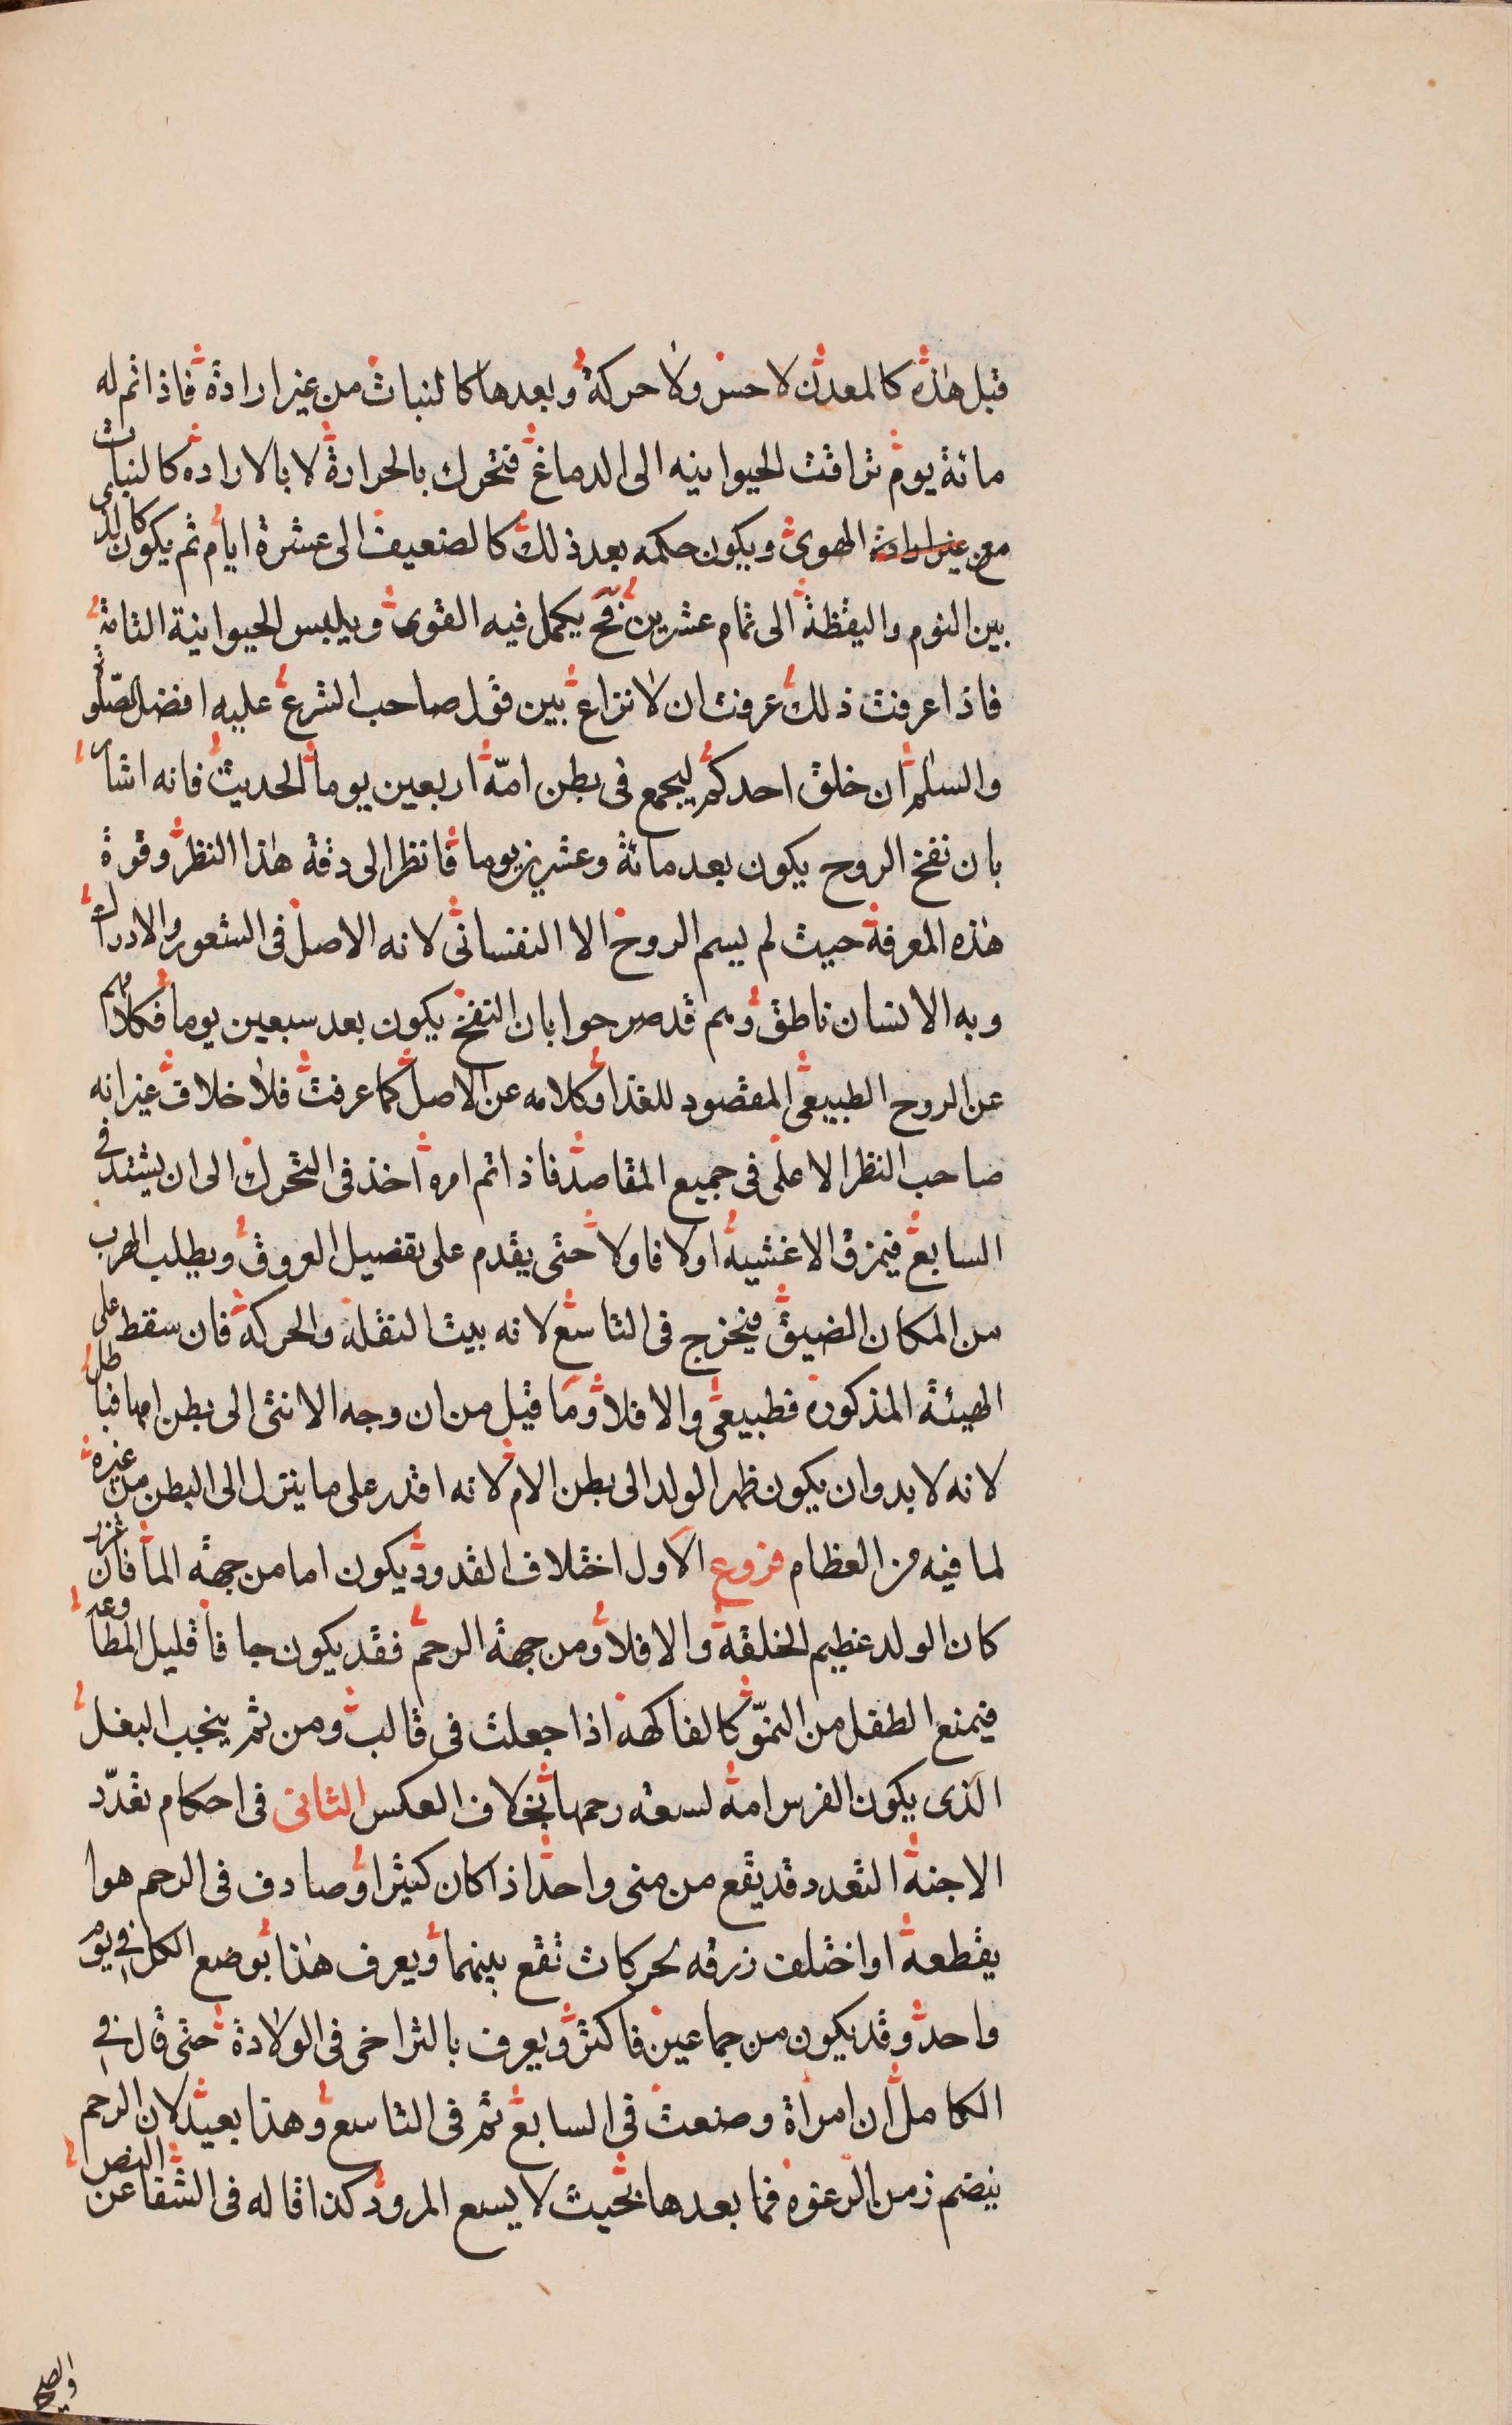 قبل هذه كالمعدن لا حس ولا حركة وبعدها كالنبات من غير ارادة فاذا تم له
مائة يوم تراقت الحيوانيه الى الدماغ فتحرك بالحرارة لا بالاراده كالنبات
مع غير ارادة الهوى ويكون حكمه بعد ذلك كالضعيف الى عشرة ايام ثم يكون كالذى
بين النوم واليقظة الى تمام عشرين فح يكمل فيه القوى ويلبس الحيوانية التامة
فاذا عرفت ذلك عرفت ان لا نزاع بين قول صاحب الشرع عليه افضل الصلوة
والسلم ان خلق احدكم ليجمع فى بطن امّه اربعين يوما الحديث فانه اشار
بان نفخ الروح يكون بعد مائة وعشرين يوما فانظر الى دقة هذا النظر وقوة
هذه المعرفة حيث لم يسم الروح الا النفسانى لانه الاصل فى الشعور والادراك
وبه الانسان ناطق وهم قد صرحوا بان النفخ يكون بعد سبعين يوما فكلامهم
عن الروح الطبيعى المقصود للغذا وكلامه عن الاصل كما عرفت فلا خلاف غير انه
صاحب النظر الاعلى فى جميع المقاصد فاذا تم امره اخذ فى التحرك الى ان يشتد فى
السابع فيمزق الاغشيه اولا فاولا حتى يقدم على تفصيل العروق ويطلب الهرب
من المكان الضيق فيخرج فى التاسع لانه بيت النقلة والحركة فان سقط على
الهيئة المذكوره فطبيعى والا فلا وما قيل من ان وجه الانثى الى بطن امها فباطل
لانه لا بد وان يكون ظهر الولد الى بطن الام لانه اقدر على ما ينزل الى البطن من غيره
لما فيه من العظام فروع الاول اختلاف القدود يكون اما من جهة الما فان غزر
كان الولد عظيم الخلقة والا فلا ومن جهة الرحم فقد يكون جافا قليل المطاوعة
فيمنع الطفل من النموّ كالفاكهة اذا جعلت فى قالب ومن ثم ينجب البغل
الذى يكون الفرس امه لسعة رحمها بخلاف العكس الثانى فى احكام تعدّد
الاجنة التعدد قد يقع من منى واحد اذا كان كثيرا وصادف فى الرحم هوا
يقطعه او اختلف زرقه لحركات تقع بينهما ويعرف هذا بوضع الكل فى يوم
واحد وقد يكون من جماعين فاكثر ويعرف بالتراخى فى الولادة حتى قال فى
الكامل ان امراة وضعت فى السابع ثم فى التاسع وهذا بعيد لان الرحم
ينضم زمن الرغوه فما بعدها بحيث لا يسع المرود كذا قاله فى الشفا عن النص
والصحيح